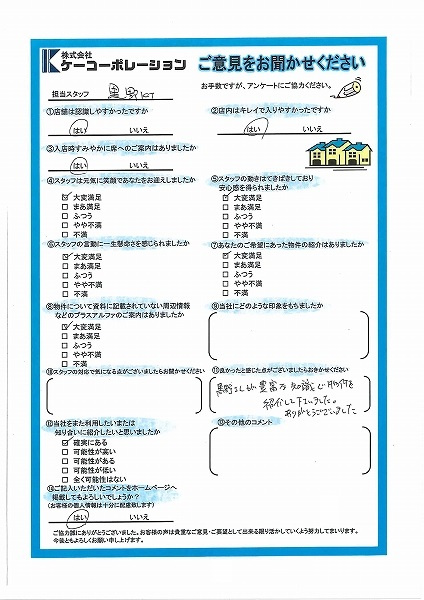 株式会社
ケーコーポレーション
ご意見をお聞かせください
お手数ですが、アンケートにご協力ください。
担当スタッフ
①店舗は認識しやすかったですか
はい いいえ
②店内はキレイで入りやすかったですか
はい いいえ
③入店時すみやかに席へのご案内はありましたか
はい いいえ
④スタッフは元気に笑顔であなたをお迎えしましたか
☑ 大変満足
□ まあ満足
□ ふつう
□ やや不満
□ 不満
⑤スタッフの動きはてきぱきしており
安心感を得られましたか
☑ 大変満足
□ まあ満足
□ ふつう
□ やや不満
□ 不満
⑥スタッフの言動に一生懸命さを感じられましたか
☑ 大変満足
□ まあ満足
□ ふつう
□ やや不満
□ 不満
⑦あなたのご希望にあった物件の紹介はありましたか
☑ 大変満足
□ まあ満足
□ ふつう
□ やや不満
□ 不満
⑧物件について資料に記載されていない周辺情報
などのプラスアルファのご案内はありましたか
☑ 大変満足
□ まあ満足
□ ふつう
□ やや不満
□ 不満
⑨当社にどのような印象をもちましたか
⑩スタッフの対応で気になる点がございましたらお聞かせください
⑪良かったと感じた点がございましたらおきかせください
豊富な知識で物件を
紹介して下さいました。
ありがとうございました
⑫当社をまた利用したいまたは
知り合いに紹介したいと思いましたか
☑ 確実にある
□ 可能性が高い
□ 可能性がある
□ 可能性が低い
□ 全く可能性はない
⑬その他のコメント
⑭ご記入いただいたコメントをホームページへ
掲載してもよろしいでしょうか?
(お客様の個人情報は十分に配慮致します)
はい いいえ
ご協力誠にありがとうございました。お客様の声は貴重なご意見・ご要望として出来る限り活かしていくよう努力してまいります。
今後ともよろしくお願い申し上げます。